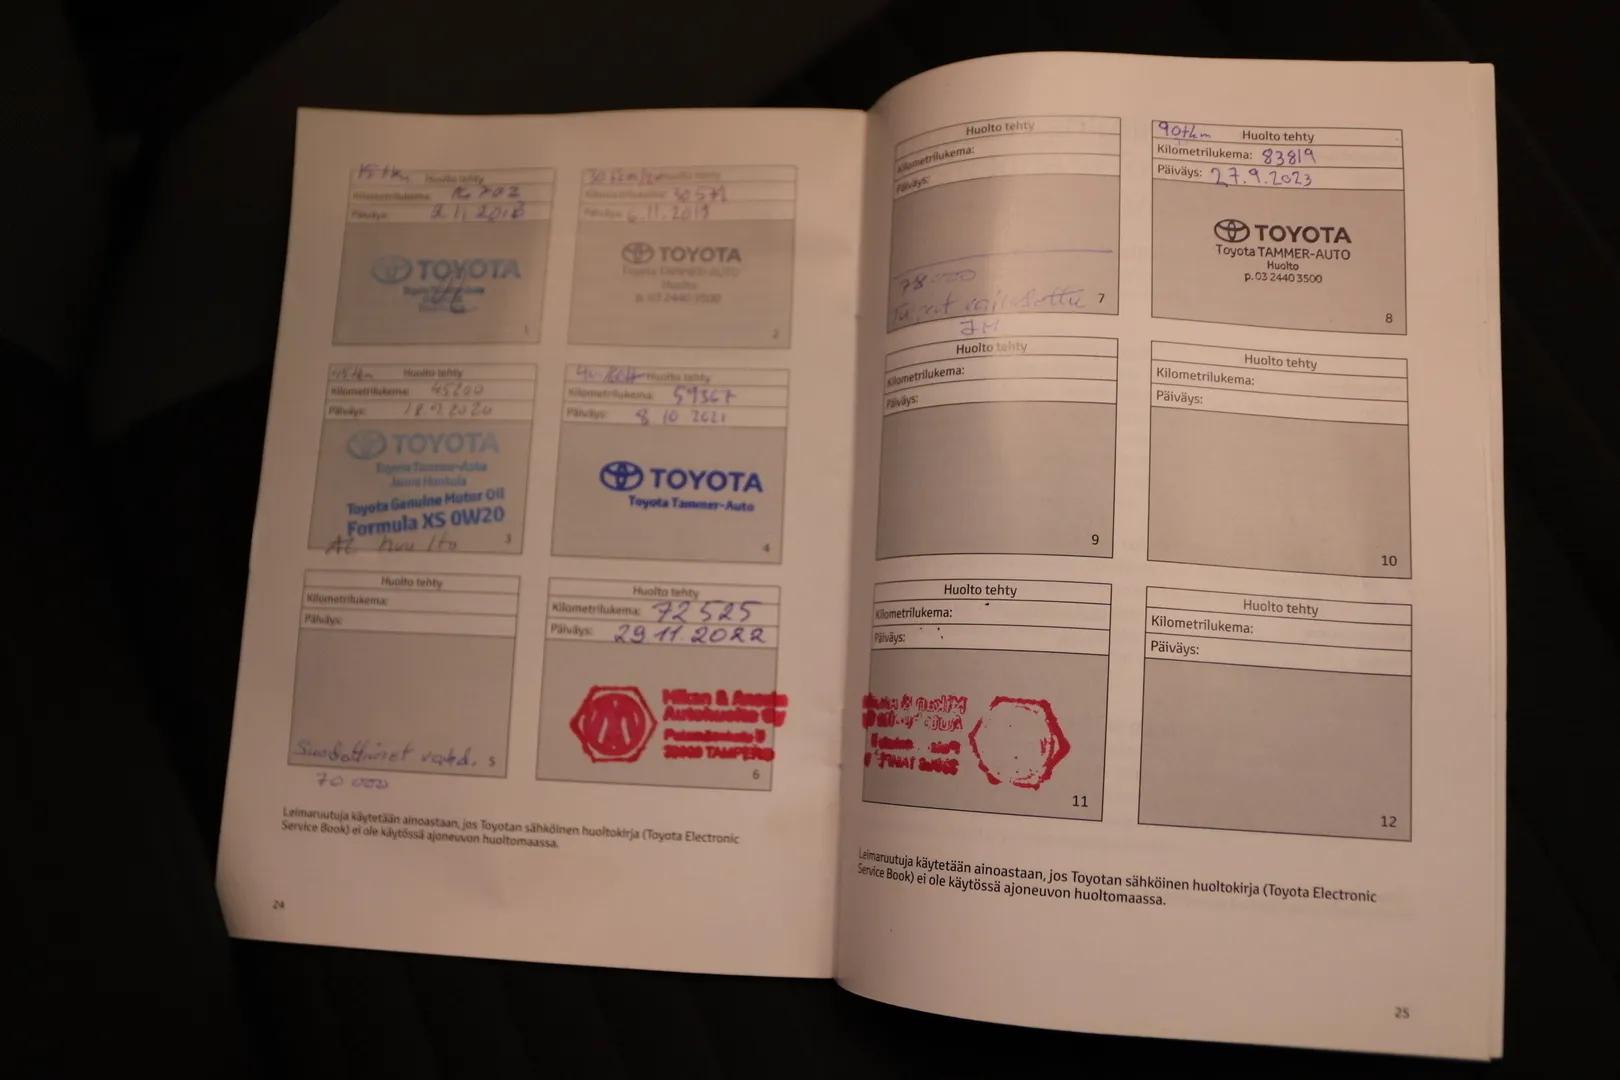 15 tkm Huolto tehty
Kilometrilukema:
Päiväys: 2.11.2018
TOYOTA
1
Huolto tehty
Kilometrilukema: 30571
Päiväys: 6.11.2019
TOYOTA
Toyota TAMMER-AUTO
Huolto
p. 03 2440 3500
2
45 tkm Huolto tehty
Kilometrilukema: 45200
Päiväys: 18.9.2020
TOYOTA
Toyota Tammer-Auto
Toyota Genuine Motor Oil
Formula XS 0W20
huolto
3
Huolto tehty
Kilometrilukema: 59367
Päiväys: 8.10.2021
TOYOTA
Toyota Tammer-Auto
4
Huolto tehty
Kilometrilukema:
Päiväys:
5
70 000
Huolto tehty
Kilometrilukema: 72525
Päiväys: 29.11.2022
TAMPERE
6
Leimaruutuja käytetään ainoastaan, jos Toyotan sähköinen huoltokirja (Toyota Electronic
Service Book) ei ole käytössä ajoneuvon huoltomaassa.
24
Huolto tehty
Kilometrilukema:
Päiväys:
78000
7
90tkm Huolto tehty
Kilometrilukema: 83819
Päiväys: 27.9.2023
TOYOTA
Toyota TAMMER-AUTO
Huolto
p. 03 2440 3500
8
Huolto tehty
Kilometrilukema:
Päiväys:
9
Huolto tehty
Kilometrilukema:
Päiväys:
10
Huolto tehty
Kilometrilukema:
Päiväys:
11
Huolto tehty
Kilometrilukema:
Päiväys:
12
Leimaruutuja käytetään ainoastaan, jos Toyotan sähköinen huoltokirja (Toyota Electronic
Service Book) ei ole käytössä ajoneuvon huoltomaassa.
25